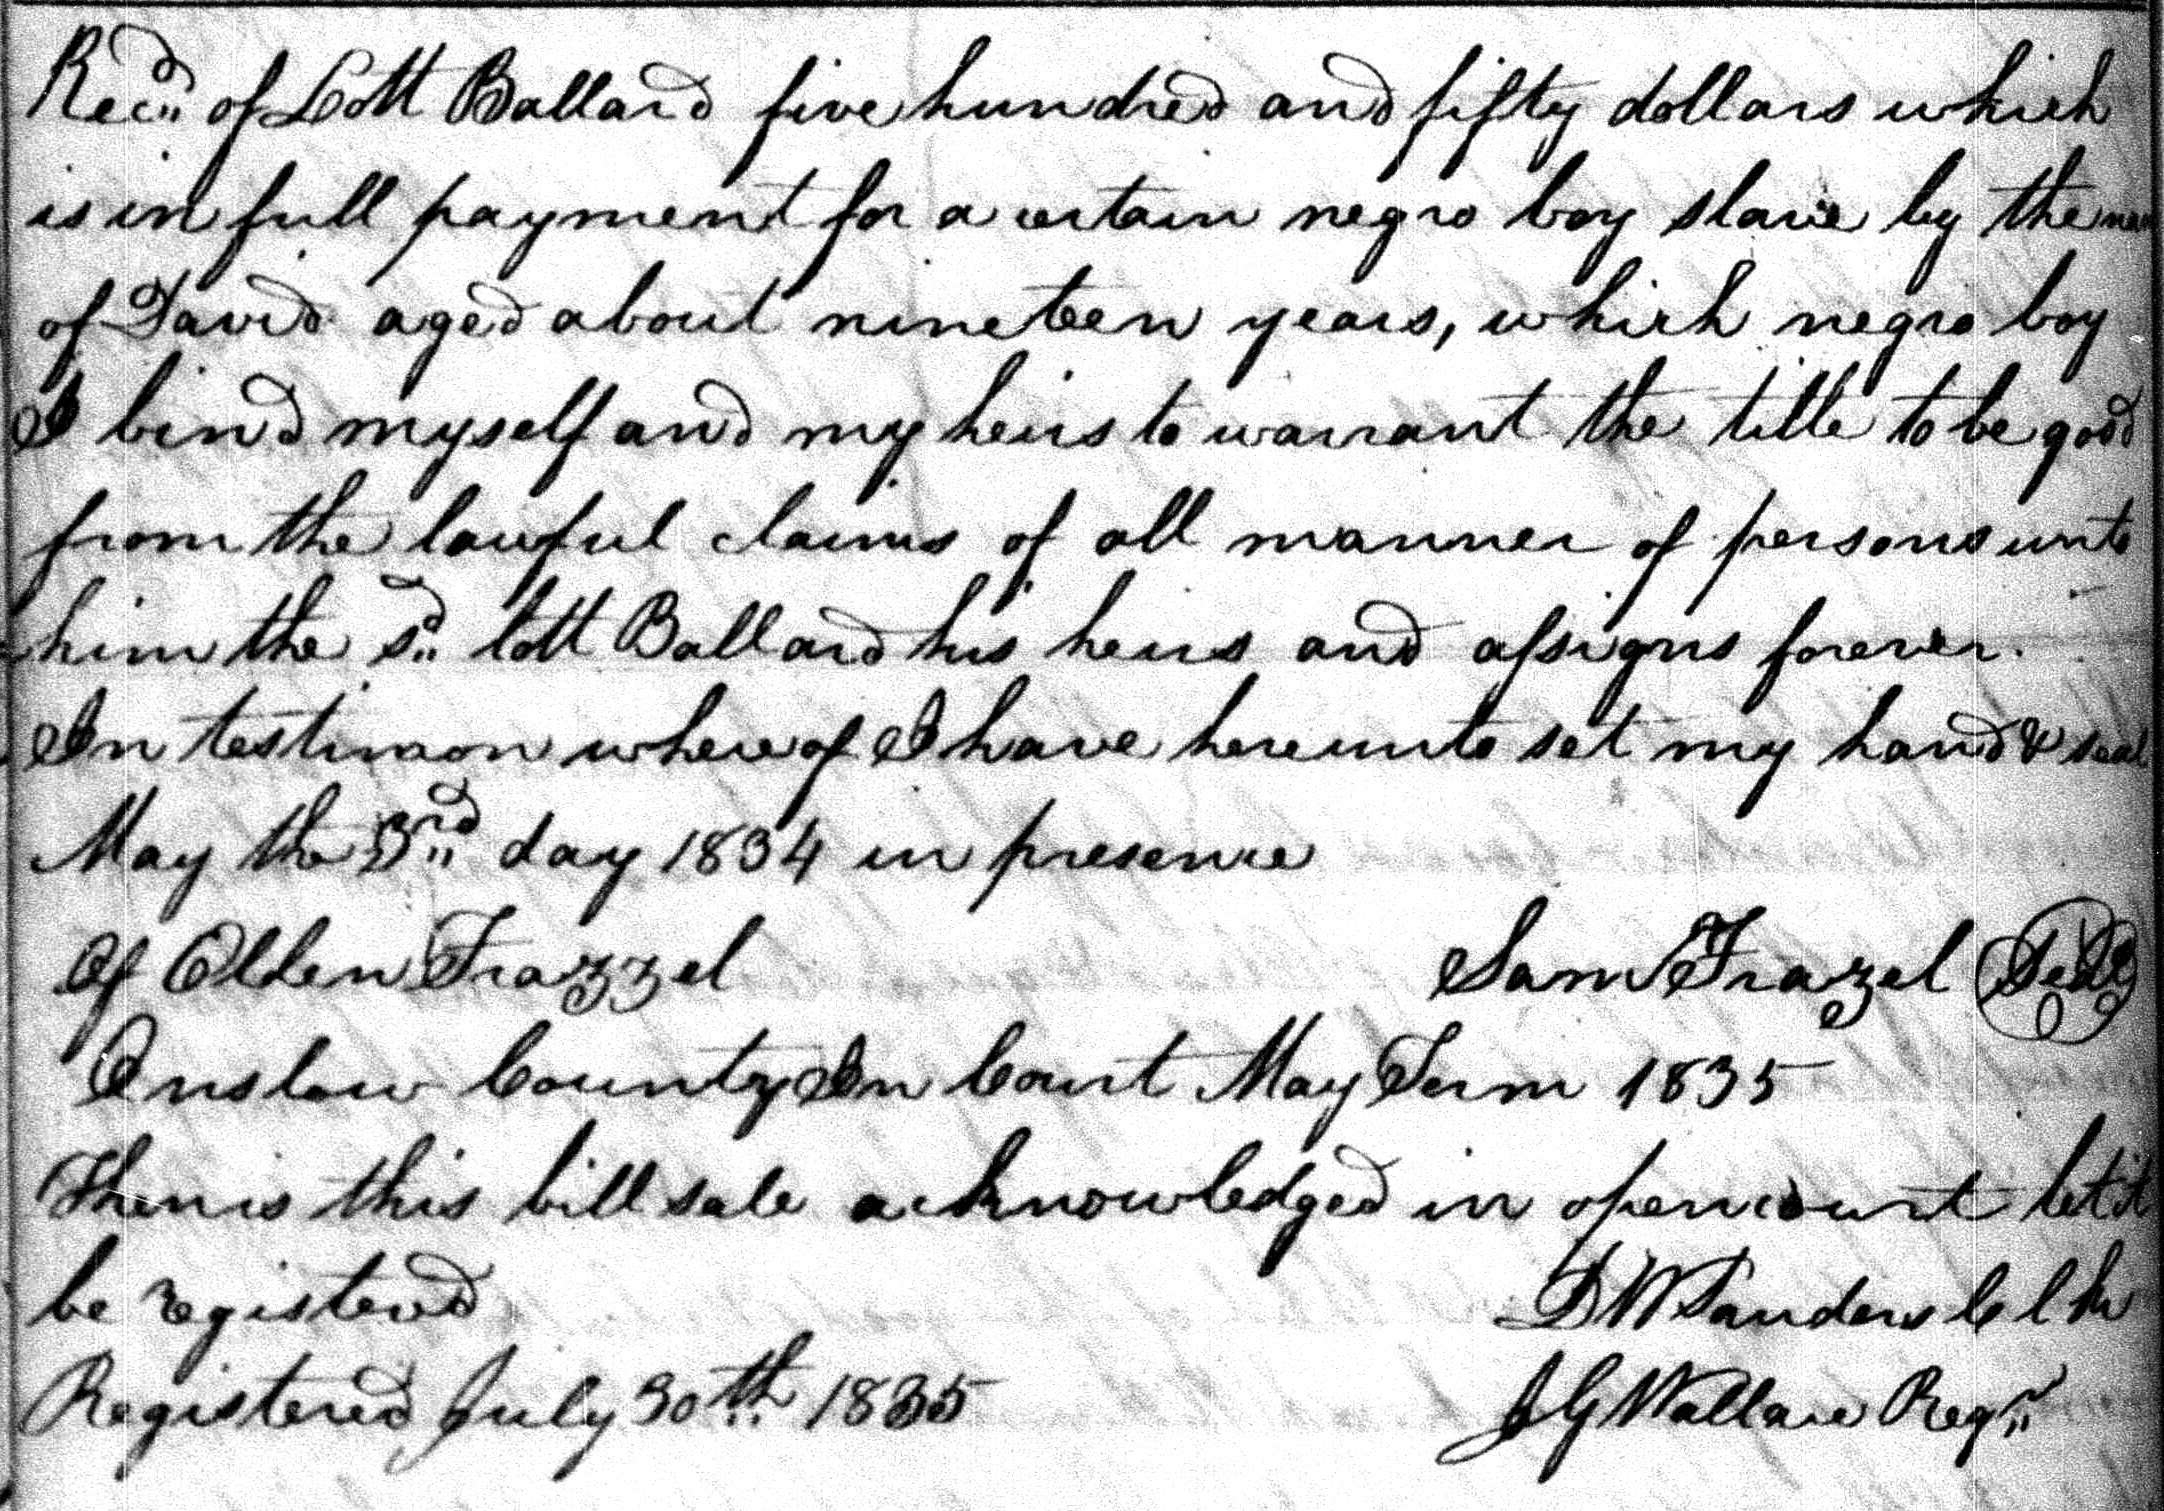 Recd of Lott Ballard five hundred and fifty dollars which
is in full payment for a certain negro boy slave by the
of David aged about nineteen years, which negro boy
I bind myself and my heirs to warrant the title to be good
from the lawful claims of all manner of persons unto
him the sd lott Ballard his heirs and assigns forever.
In testimon whereof I have hereunto set my hand & seal
May the 3rd day 1834 in presence
Of Olden Frazzel Sam Frazel Seal
Onslow County In Court May Term 1835
Then is this bill sale acknowledged in open court let it
be registered D W Sanders Clk
Registered July 30th 1835 J G Wallace Regr